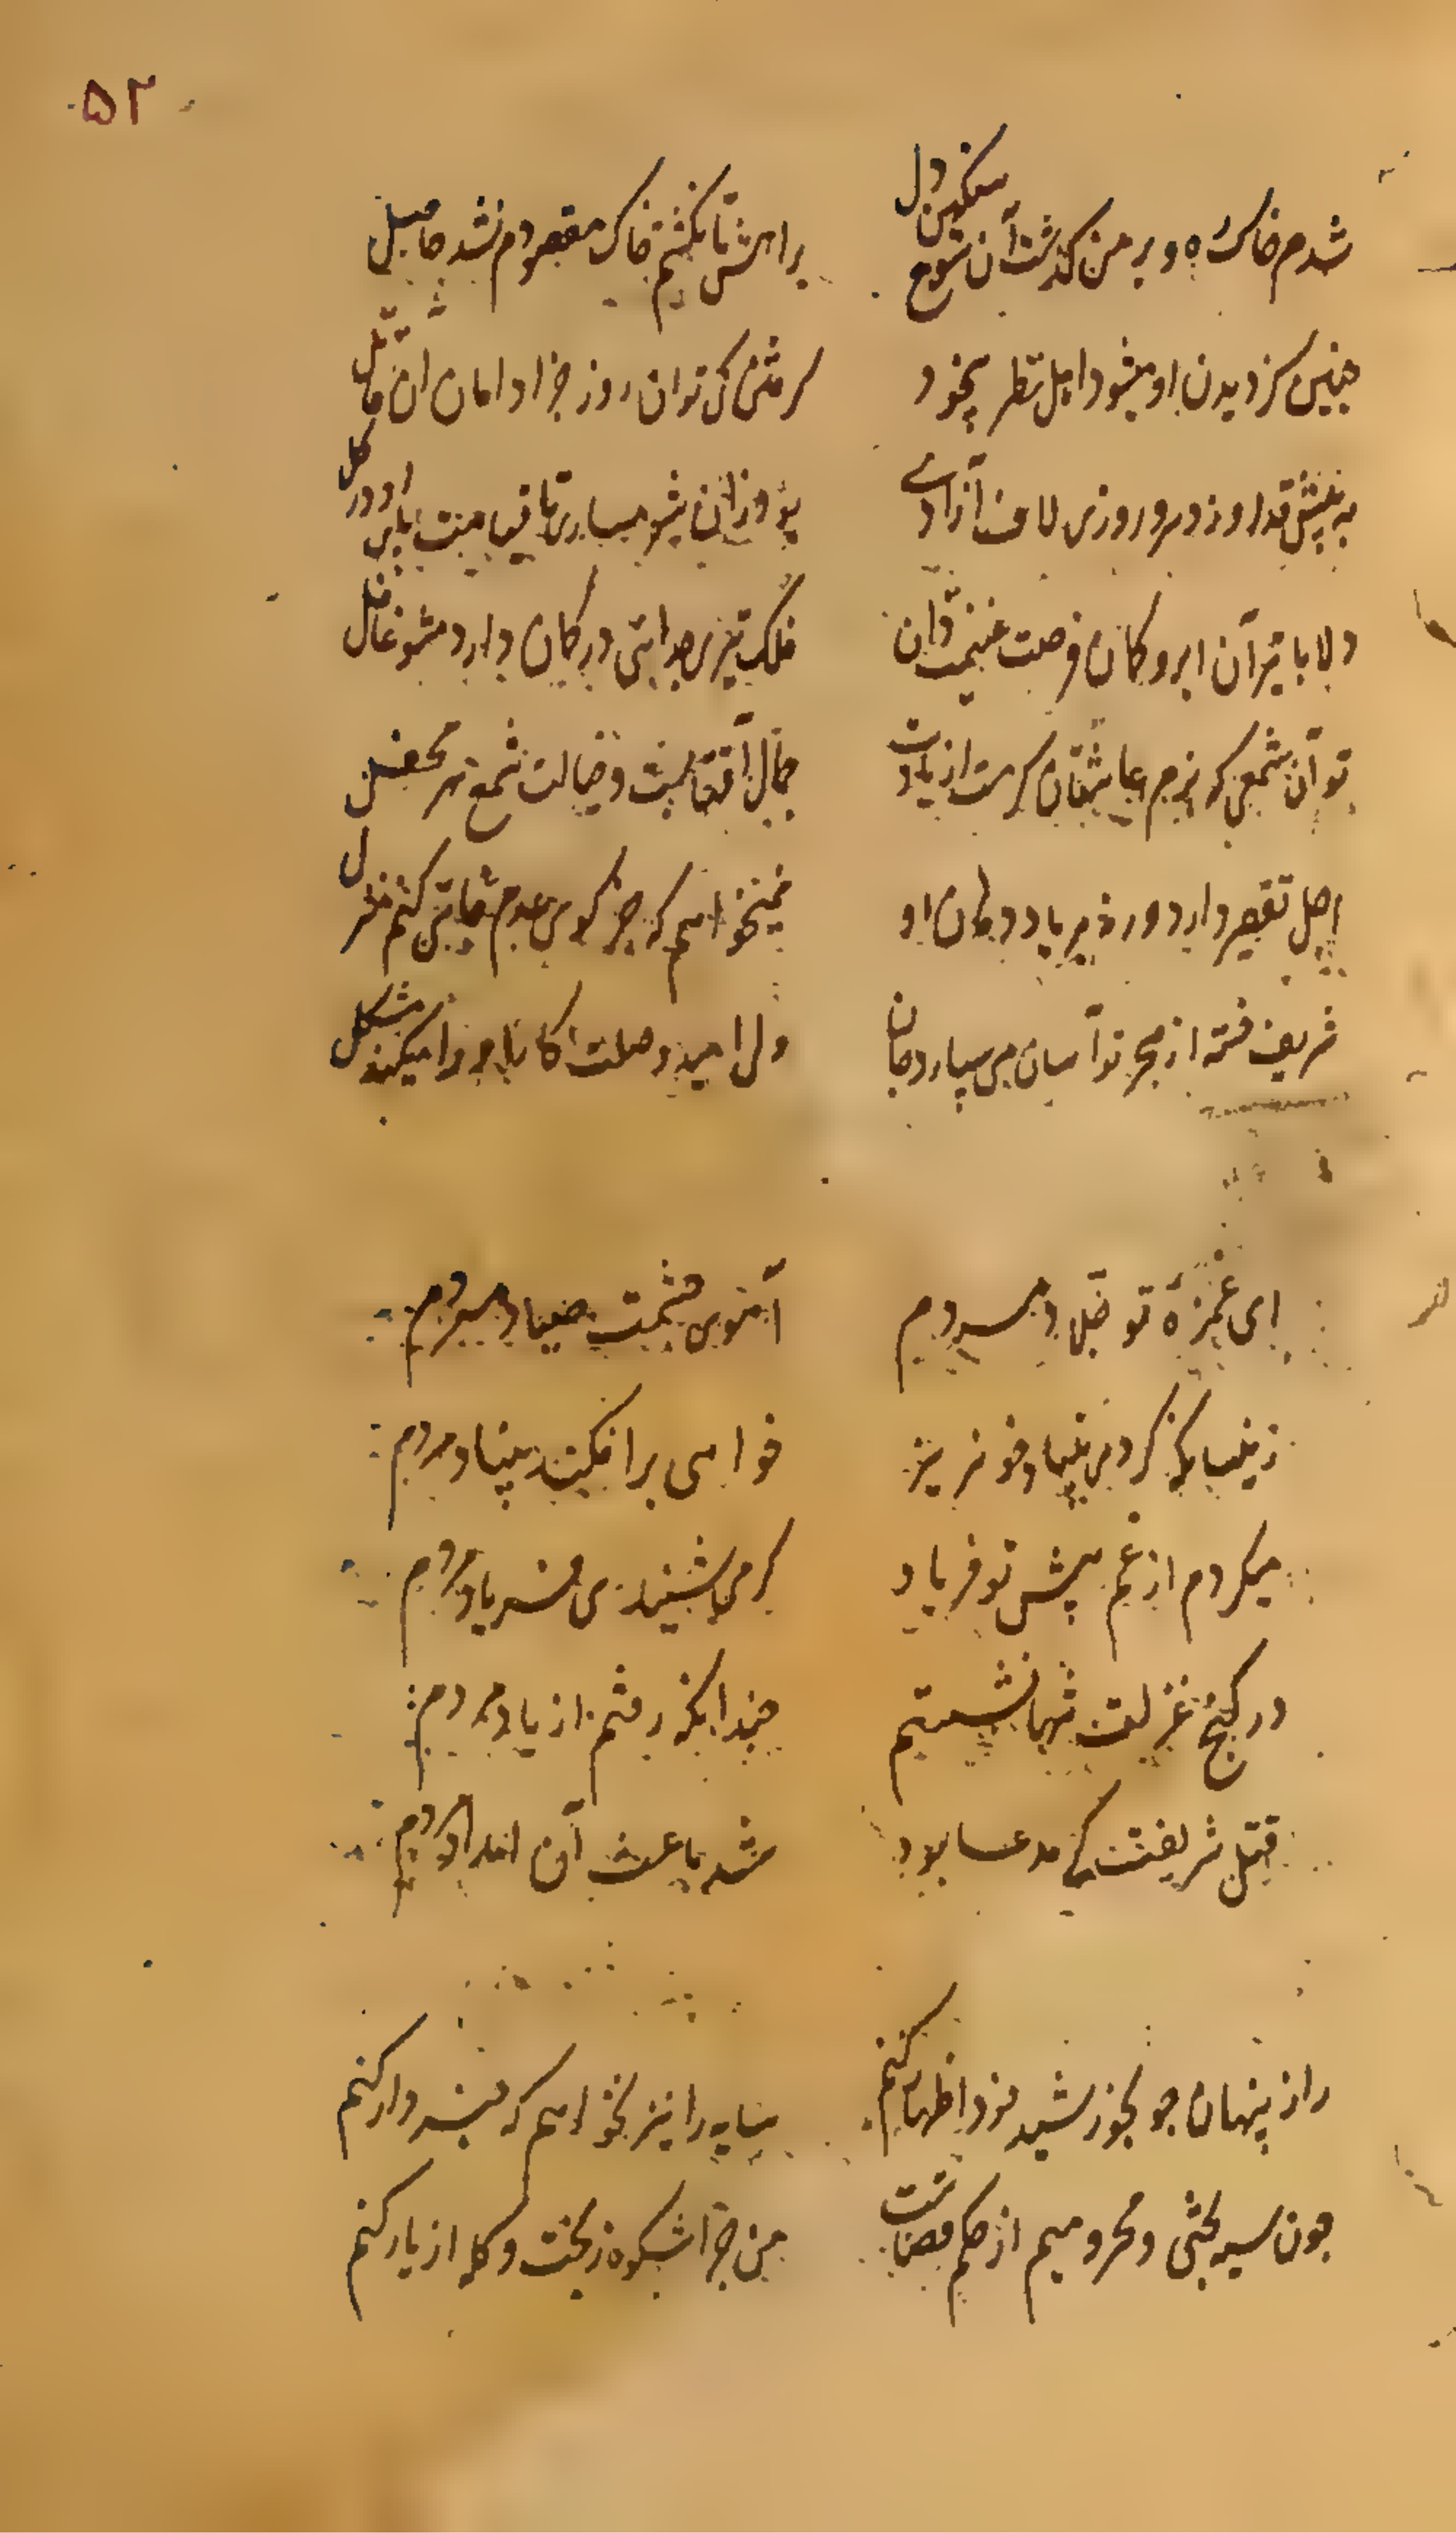 ۵۲
شدم خاک ره و بر من گذشت آن شوخ سنگین دل
براهش تا نگشتم خاک مقصودم نشد حاصل
چنین کز دیدن او میشود اهل نظر بیخود
گرفتن کی توان روز جزا دامان آن قاتل
به پیش قد او زد سرو روزی لاف آزادی
بود زان شرمساری تا قیامت پای او در گل
دلا با تیر آن ابرو کمان فرصت غنیمت دان
فلک تیر جدایی در کمان دارد مشو غافل
تو آن شمعی که بزم عاشقان گرمست از یادت
جمال آفتابست و خیالت شمع هر محفل
اجل تقصیر دارد ورنه بر یاد دهان او
نمیخواهم که جز کوی عدم جایی کنم منزل
شریف خسته از هجر تو آسان می سپارد جان
ولی امید وصلت کار ما را میکند مشکل
ای غمزهٔ تو جلاد مردم
آهوی چشمت صیاد مردم
زینسان که کردی بنیاد خونریز
خواهی برافکند بنیاد مردم
میکردم از غم پیش تو فریاد
گر می شنیدی فریاد مردم
در کنج عزلت تنها نشستم
چندانکه رفتم از یاد مردم
قتل شریفت کی مدعا بود
شد باعث آن امداد مردم
راز پنهان چو بخورشید خود اظهار کنم
سایه را نیز نخواهم که خبردار کنم
چون سیه بختی و محرومیم از حکم قضاست
من چرا شکوه ز بخت و گله از یار کنم